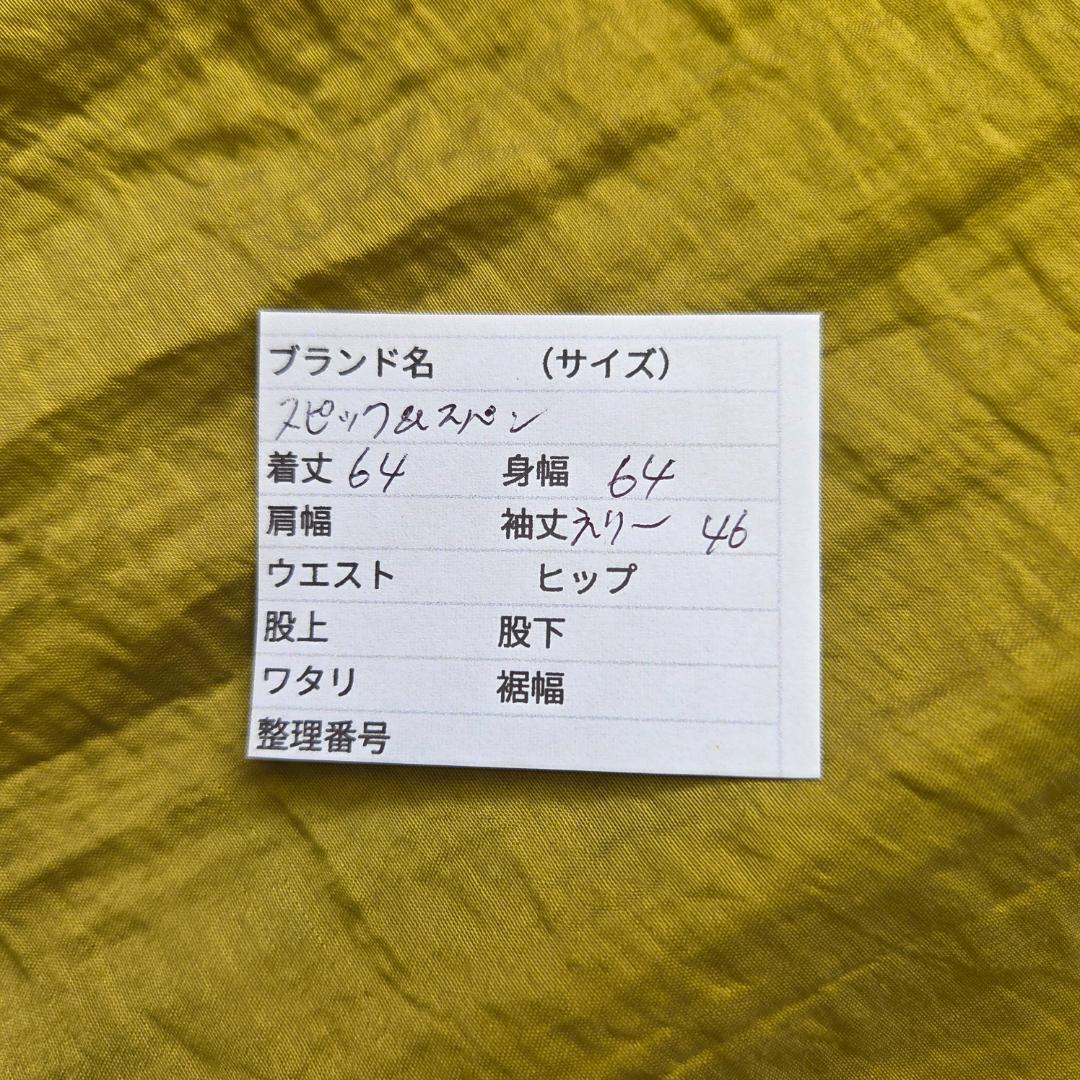 ブランド名 （サイズ）
スピック&スパン
着丈 64 身幅 64
肩幅 袖丈えりー 46
ウエスト ヒップ
股上 股下
ワタリ 裾幅
整理番号